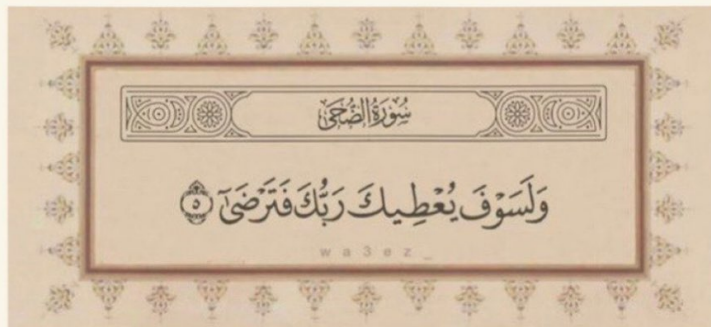 سُورَةُ الضُّحَىٰ
وَلَسَوْفَ يُعْطِيكَ رَبُّكَ فَتَرْضَىٰٓ ٥
wa3ez_